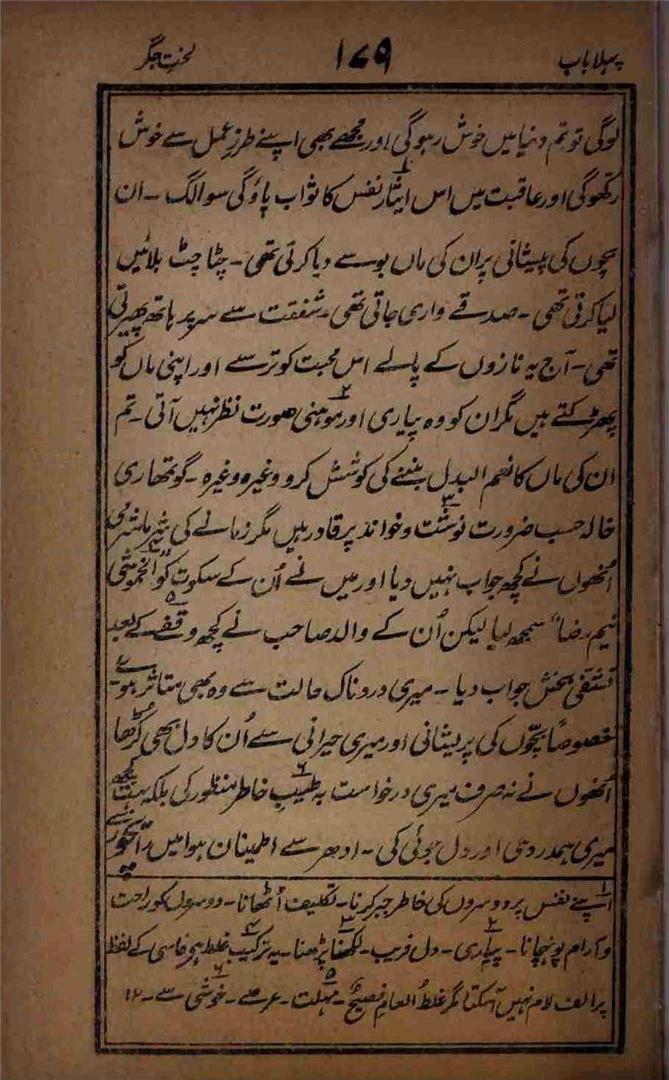 پہلا باب ۱۷۹ لخت جگر
لوگی تو تم دنیا میں خوش رہوگی اور مجھے بھی اپنے طرز عمل سے خوش
رکھوگی اور عاقبت میں اس ایثار نفس کا ثواب پاؤگی سو الگ ۔ ان
بچوں کی پیشانی پر ان کی ماں بوسے دیا کرتی تھی ۔ چٹا چٹ بلائیں
لیا کرتی تھی ۔ صدقے واری جاتی تھی ۔ شفقت سے سر پر ہاتھ پھیرتی
تھی ۔ آج یہ نازوں کے پالے اس محبت کو ترسے اور اپنی ماں کو
پھڑکتے ہیں مگر ان کو وہ پیاری اور موہنی صورت نظر نہیں آتی ۔ تم
ان کی ماں کا نعم البدل بننے کی کوشش کرو وغیرہ وغیرہ ۔ گو تمھاری
خالہ حسب ضرورت نوشت و خواند پر قادر ہیں مگر زمانے کی شرما شرمی
اُنھوں نے کچھ جواب نہیں دیا اور میں نے اُن کے سکوت کو "الخموشی
نیم رضا" سمجھ لیا لیکن اُن کے والد صاحب نے کچھ وقفے کے بعد
تشفی بخش جواب دیا ۔ میری دردناک حالت سے وہ بھی متاثر ہوئے
خصوصاً بچّوں کی پریشانی اور میری حیرانی سے اُن کا دل بھی کُڑھا
اُنھوں نے نہ صرف میری درخواست بہ طیب خاطر منظور کی بلکہ بہت کچھ
میری ہمدردی اور دل جوئی کی ۔ ادھر سے اطمینان ہوا میں
۱ اپنے نفس پر دوسروں کی خاطر جبر کرنا ۔ تکلیف اُٹھانا ۔ دوسروں کو راحت
و آرام پہونچانا ۔ ۲ پیاری ۔ دل فریب ۔ ۳ لکھنا پڑھنا ۔ ۴ یہ ترکیب غلط ہے فارسی کے لفظ
پر الف لام نہیں آسکتا مگر غلط العام فصیح ۔ ۵ مہلت ۔ عرصے ۔ ۶ خوشی سے ۔ ۱۲